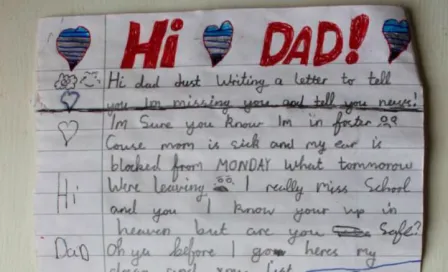 Hi DAD!
Hi dad Just Writing a letter to tell
you Im missing you and tell you news!
Im Sure you know Im in foster
Couse mom is sick and my ear is
blocked from MONDAY what tommorow
Hi Were leaving I really miss School
and you I know your up in
heaven but are you Safe?
Dad Oh ya before I go heres my